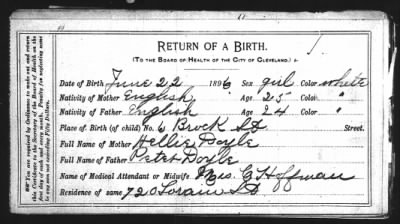 RETURN OF A BIRTH.
(TO THE BOARD OF HEALTH OF THE CITY OF CLEVELAND.)
Date of Birth June 22 1896 Sex girl Color white
Nativity of Mother English Age 25 Color "
Nativity of Father English Age 24 Color "
Place of Birth (of child) No. 6 Brock St Street.
Full Name of Mother Nellie Doyle
Full Name of Father Peter Doyle
Name of Medical Attendant or Midwife Mrs. C Hoffman
Residence of same 720 Lorain St.
You are required by Ordinance to make out and return
this Certificate to the Secretary of the Board of Health on the
first day of each and every month. Penalty for neglecting same
not exceeding Fifty Dollars.